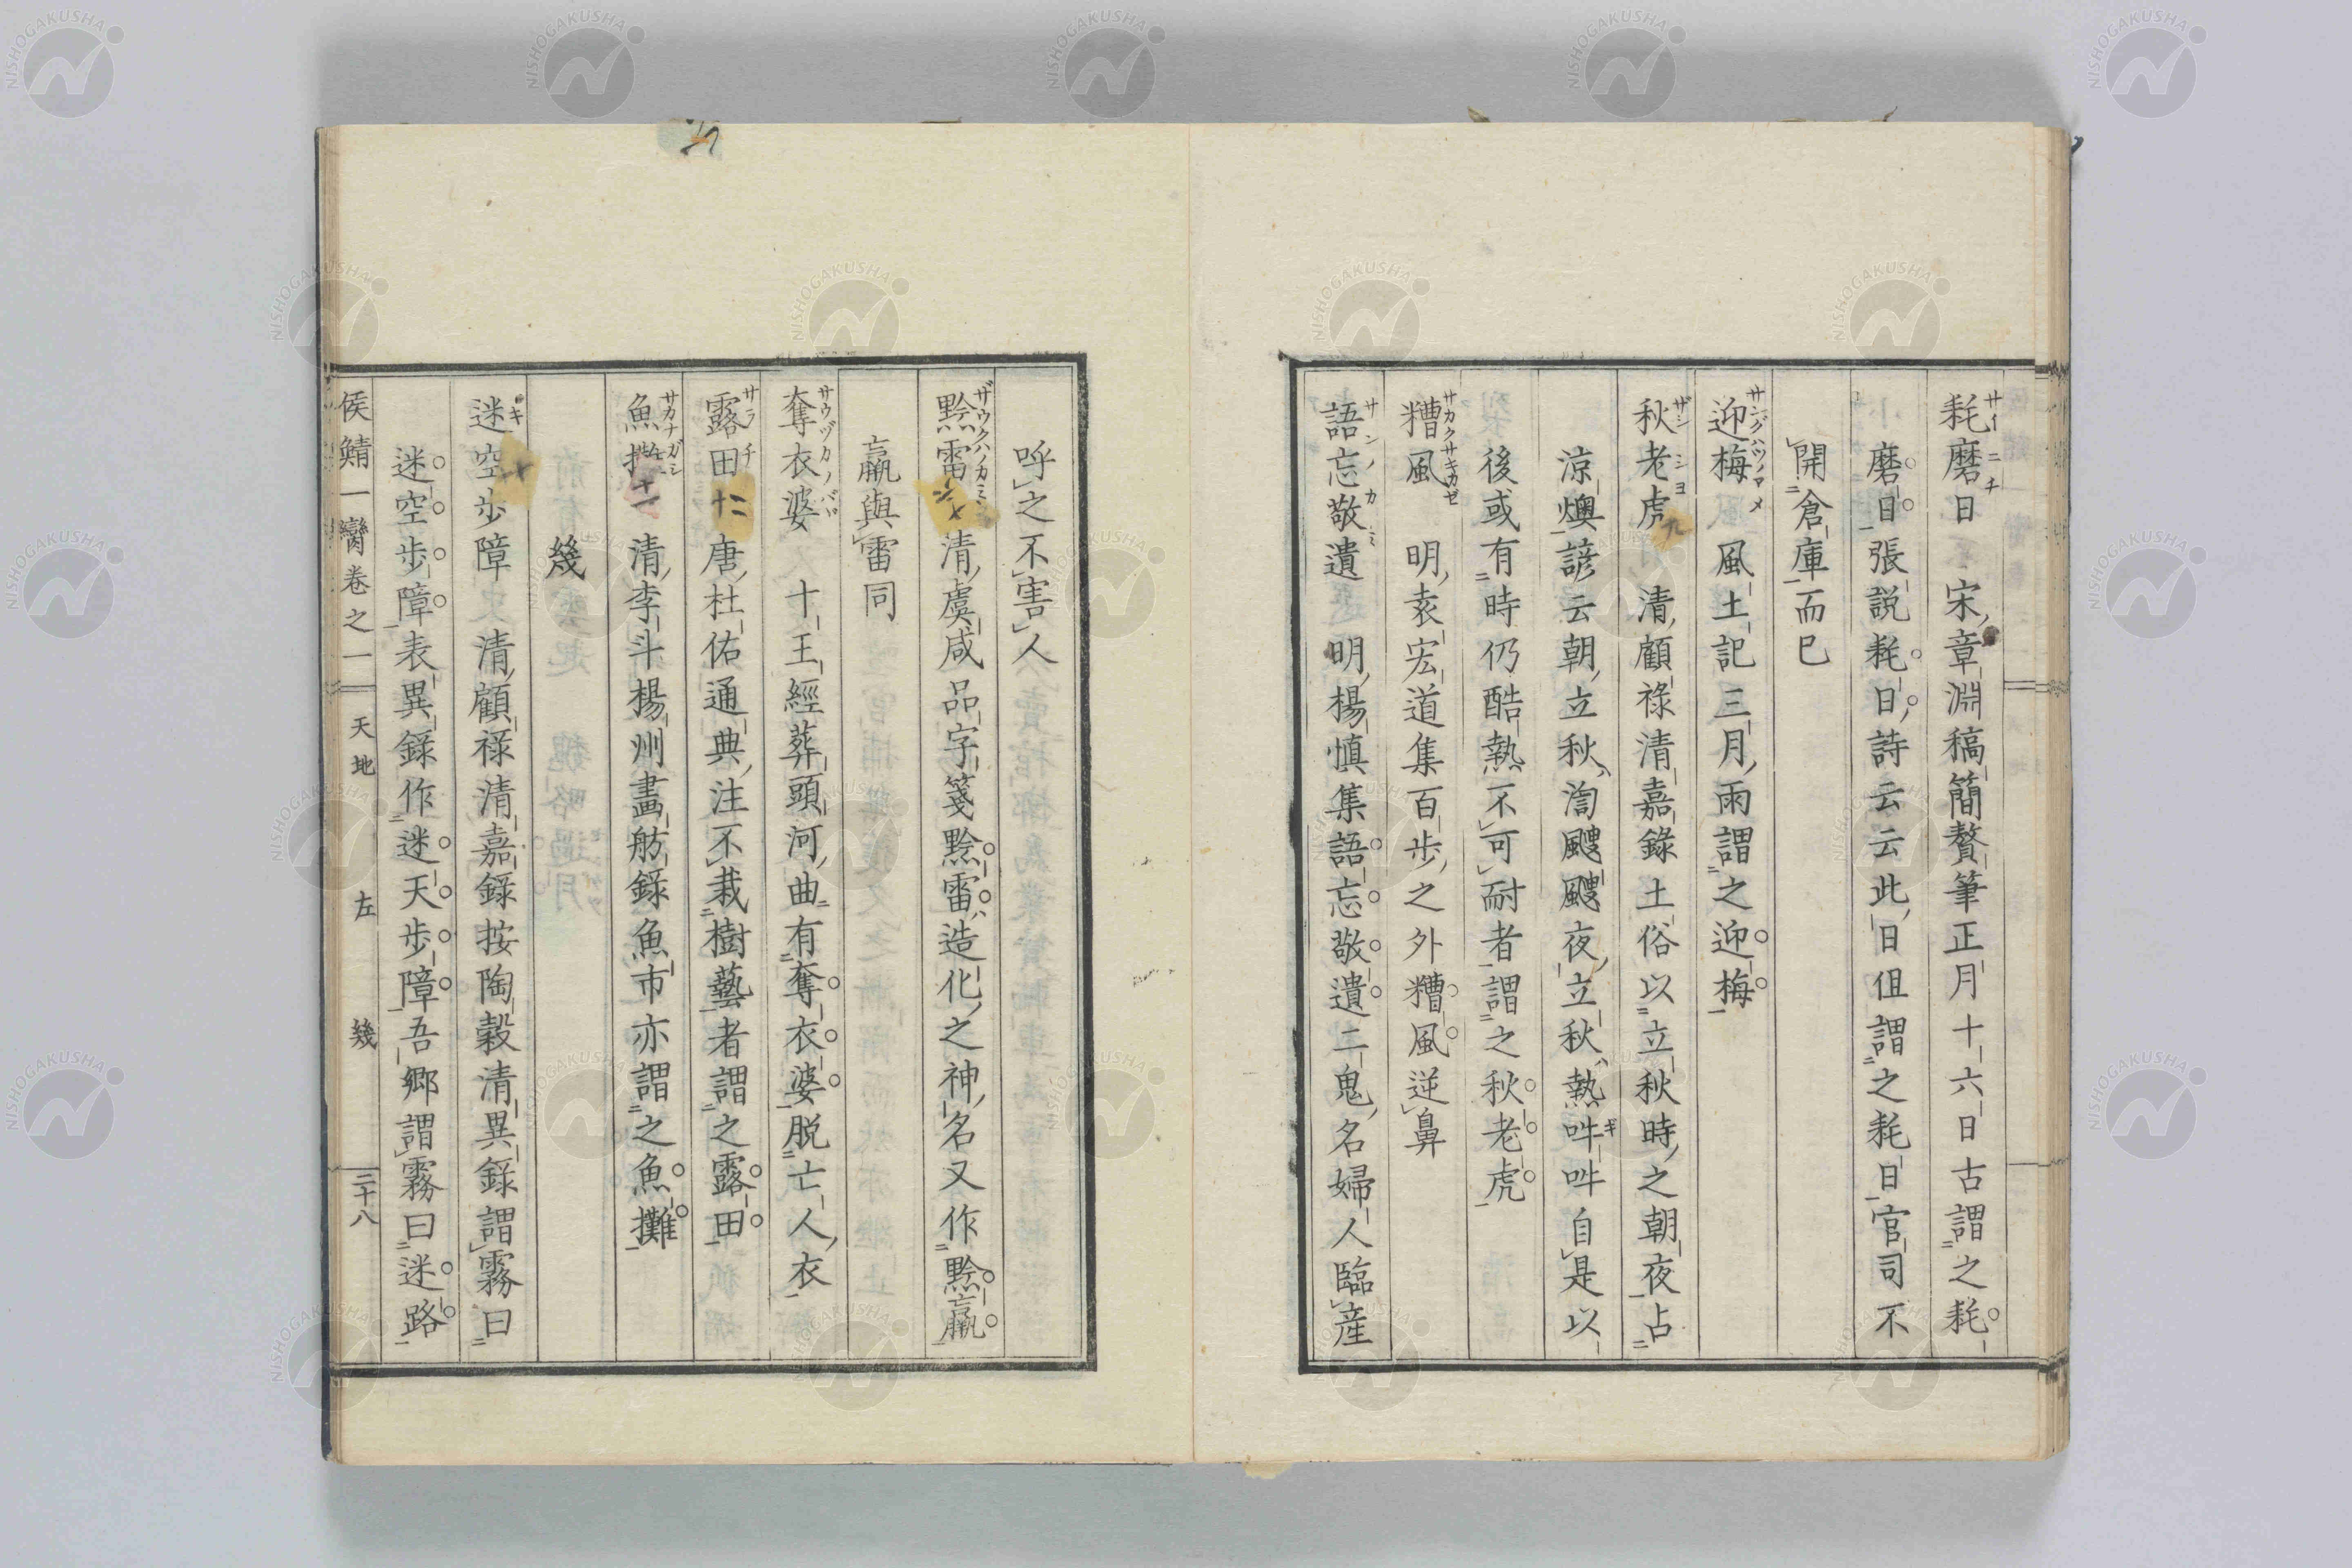 耗磨日 宋章淵稿簡贅筆正月十六日古謂之耗
磨日張説耗日詩云云此日但謂之耗日官司不
開倉庫而已
迎梅 風土記三月雨謂之迎梅
秋老虎 清顧祿清嘉錄土俗以立秋時之朝夜占
涼燠諺云朝立秋渹颼颼夜立秋熱吽吽自是以
後或有時仍酷熱不可耐者謂之秋老虎
糟風 明袁宏道集百步之外糟風逆鼻
語忘敬遺 明楊慎集語忘敬遺二鬼名婦人臨産
呼之不害人
黔雷 清虞咸品字箋黔雷造化之神名又作黔羸
羸與雷同
奪衣婆 十王經葬頭河曲有奪衣婆脱亡人衣
露田 十二 唐杜佑通典注不栽樹藝者謂之露田
魚攤 十一 清李斗楊州畫舫錄魚市亦謂之魚攤
幾
迷空步障 清顧祿清嘉錄按陶穀清異錄謂霧曰
迷空步障表異錄作迷天步障吾鄉謂霧曰迷路
侯鯖一臠卷之一 天地 左 幾 三十八
NISHOGAKUSHA